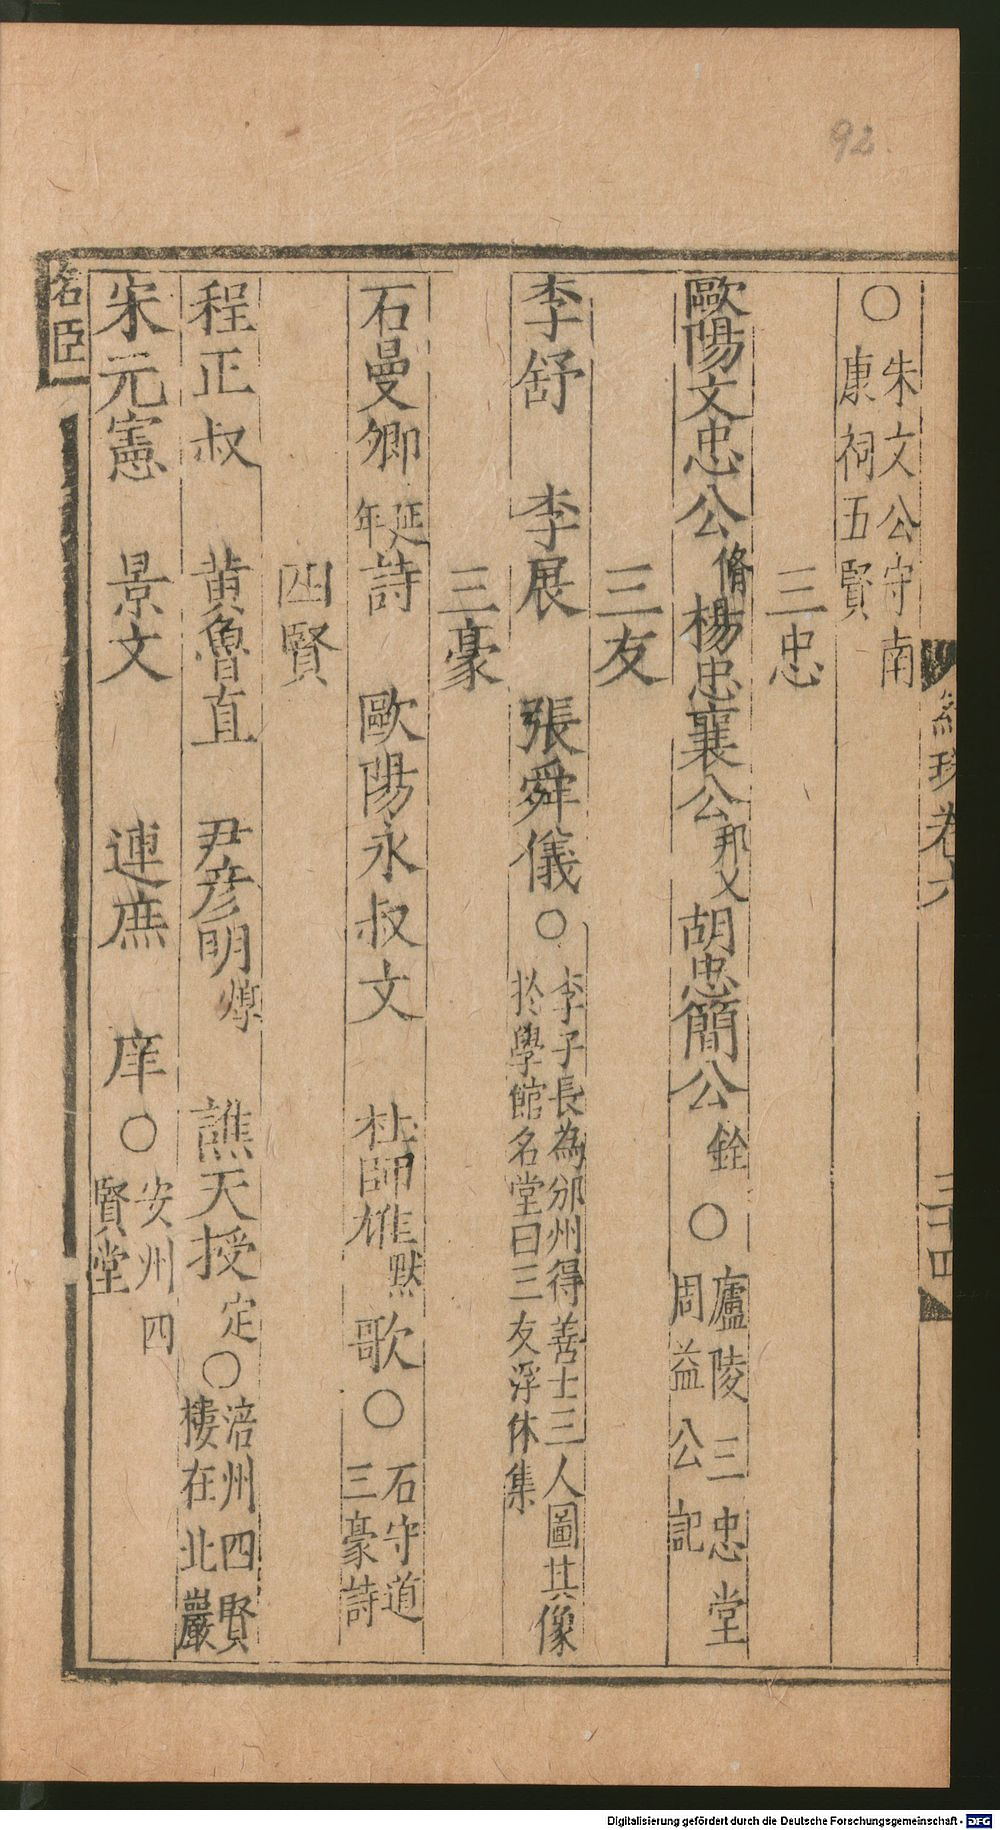 92
○朱文公守南康祠五賢
三忠
歐陽文忠公脩楊忠襄公邦乂胡忠簡公銓○廬陵三忠堂周益公記
三友
李舒 李展 張舜儀○李子長為邠州得善士三人圖其像於學館名堂曰三友浮休集
三豪
石曼卿延年詩 歐陽永叔文 杜師雄默歌○石守道三豪詩
四賢
程正叔 黃魯直 尹彥明焞 譙天授定○涪州四賢樓在北巖
宋元憲 景文 連庶 庠○安州四賢堂
名臣
卷六
三十四
Digitalisierung gefördert durch die Deutsche Forschungsgemeinschaft - DFG